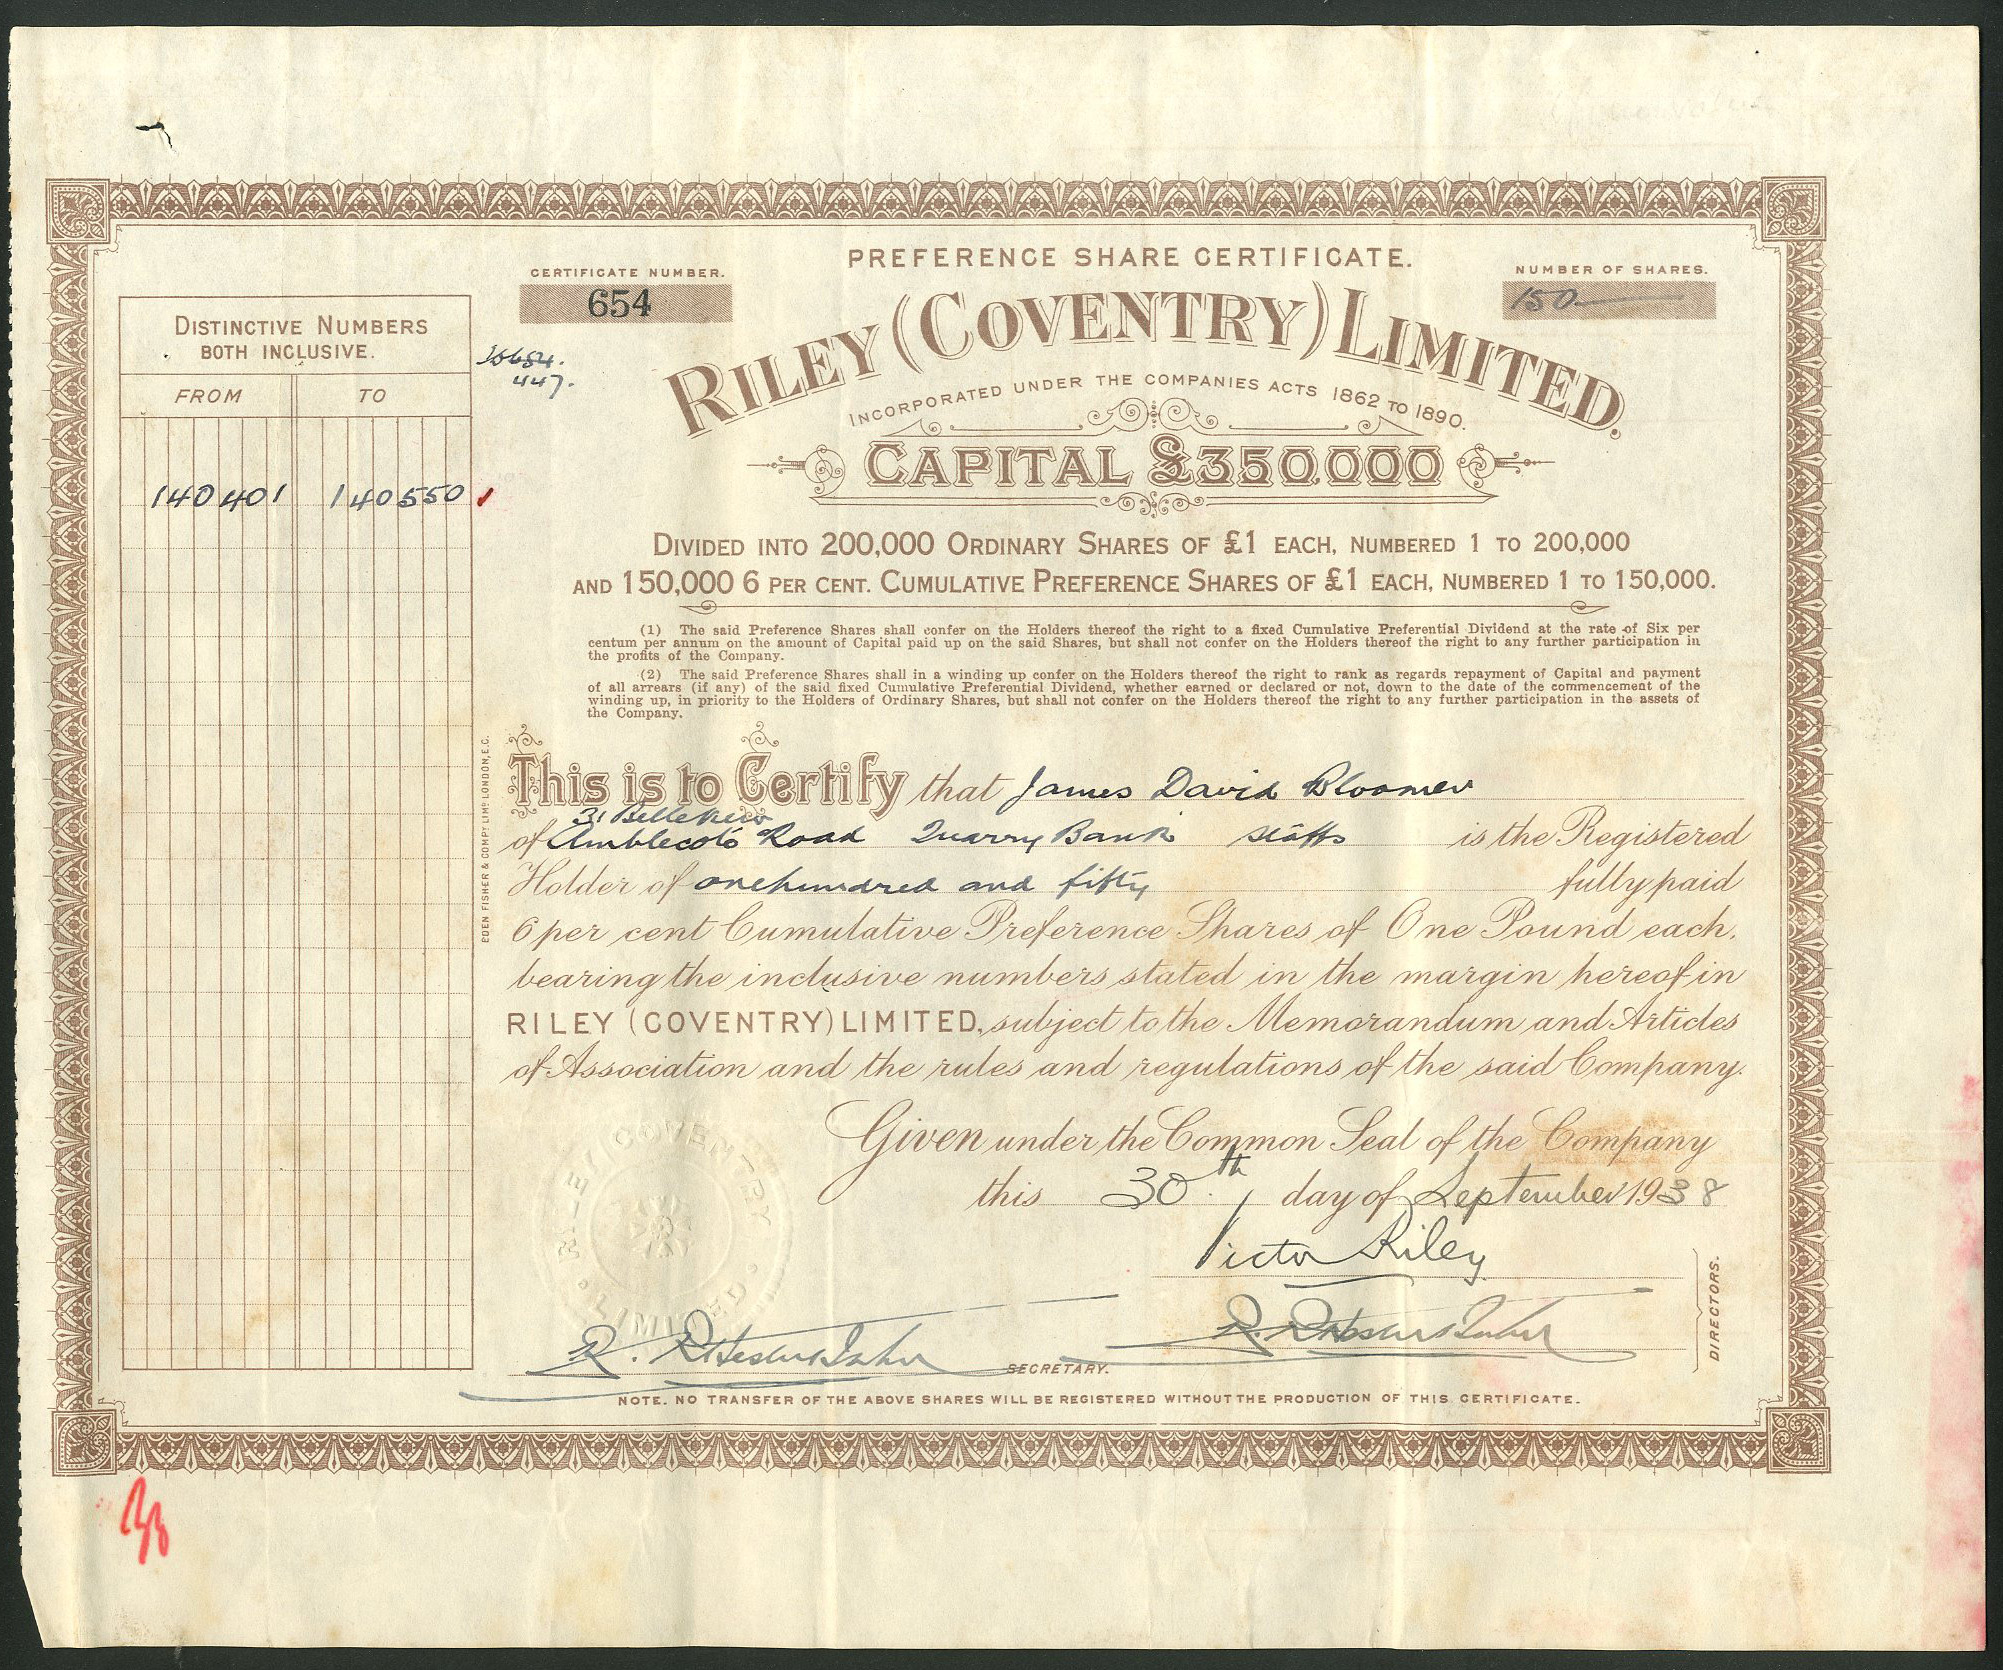 PREFERENCE SHARE CERTIFICATE.
CERTIFICATE NUMBER.
654
NUMBER OF SHARES.
150
RILEY (COVENTRY) LIMITED.
INCORPORATED UNDER THE COMPANIES ACTS 1862 TO 1890.
CAPITAL £350,000
DISTINCTIVE NUMBERS
BOTH INCLUSIVE.
FROM TO
140401 140550
447.
DIVIDED INTO 200,000 ORDINARY SHARES OF £1 EACH, NUMBERED 1 TO 200,000
AND 150,000 6 PER CENT. CUMULATIVE PREFERENCE SHARES OF £1 EACH, NUMBERED 1 TO 150,000.
(1) The said Preference Shares shall confer on the Holders thereof the right to a fixed Cumulative Preferential Dividend at the rate of Six per
centum per annum on the amount of Capital paid up on the said Shares, but shall not confer on the Holders thereof the right to any further participation in
the profits of the Company.
(2) The said Preference Shares shall in a winding up confer on the Holders thereof the right to rank as regards repayment of Capital and payment
of all arrears (if any) of the said fixed Cumulative Preferential Dividend, whether earned or declared or not, down to the date of the commencement of the
winding up, in priority to the Holders of Ordinary Shares, but shall not confer on the Holders thereof the right to any further participation in the assets of
the Company.
EDEN FISHER & COMPY LIMD LONDON, E.C.
This is to Certify that James David Bloomer
31 Belle Vue
of Amblecote Road Quarry Bank Staffs is the Registered
Holder of one hundred and fifty fully paid
6 per cent Cumulative Preference Shares of One Pound each,
bearing the inclusive numbers stated in the margin hereof in
RILEY (COVENTRY) LIMITED, subject to the Memorandum and Articles
of Association and the rules and regulations of the said Company.
Given under the Common Seal of the Company
this 30th day of September 1938
RILEY (COVENTRY) LIMITED
Victor Riley
DIRECTORS.
SECRETARY.
NOTE. NO TRANSFER OF THE ABOVE SHARES WILL BE REGISTERED WITHOUT THE PRODUCTION OF THIS CERTIFICATE.